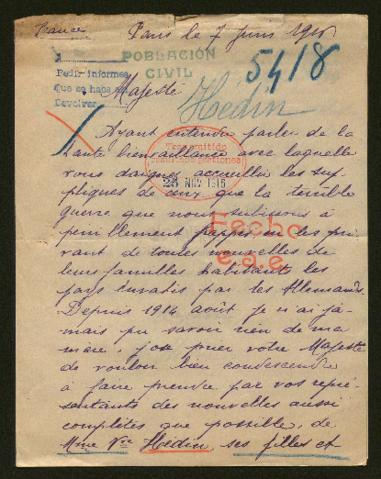 France
Paris le 7 Juin 1915
POBLACIÓN
CIVIL
5418
Pedir informes
Que se haga
Devolver
Majesté
Hedin
Ayant entendu parler de la
haute bienveillance avec laquelle
Transmitido
vous daignez accueillir les sup-
pliques de ceux que la terrible
26 NOV 1915
guerre que nous subissons a
Hecho
péniblement frappés en les pri-
vant de toutes nouvelles de
e.g.e.
leurs familles habitants les
pays envahis par les Allemands
Depuis 1914 août je n'ai ja-
mais pu savoir rien de ma
mère, j'ose prier votre Majesté
de vouloir bien condescendre
à faire prendre par vos repré-
sentants des nouvelles aussi
complètes que possible, de
Mme Vve Hédin, ses filles et